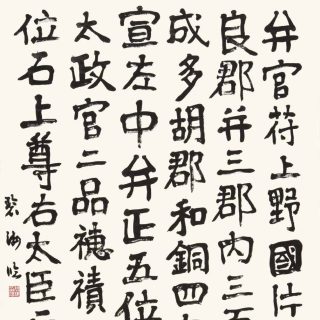 弁官符上野國片
良郡并三郡内三百
成多胡郡和銅四
宣左中弁正五位
太政官二品穂積
位石上尊右太臣
臨